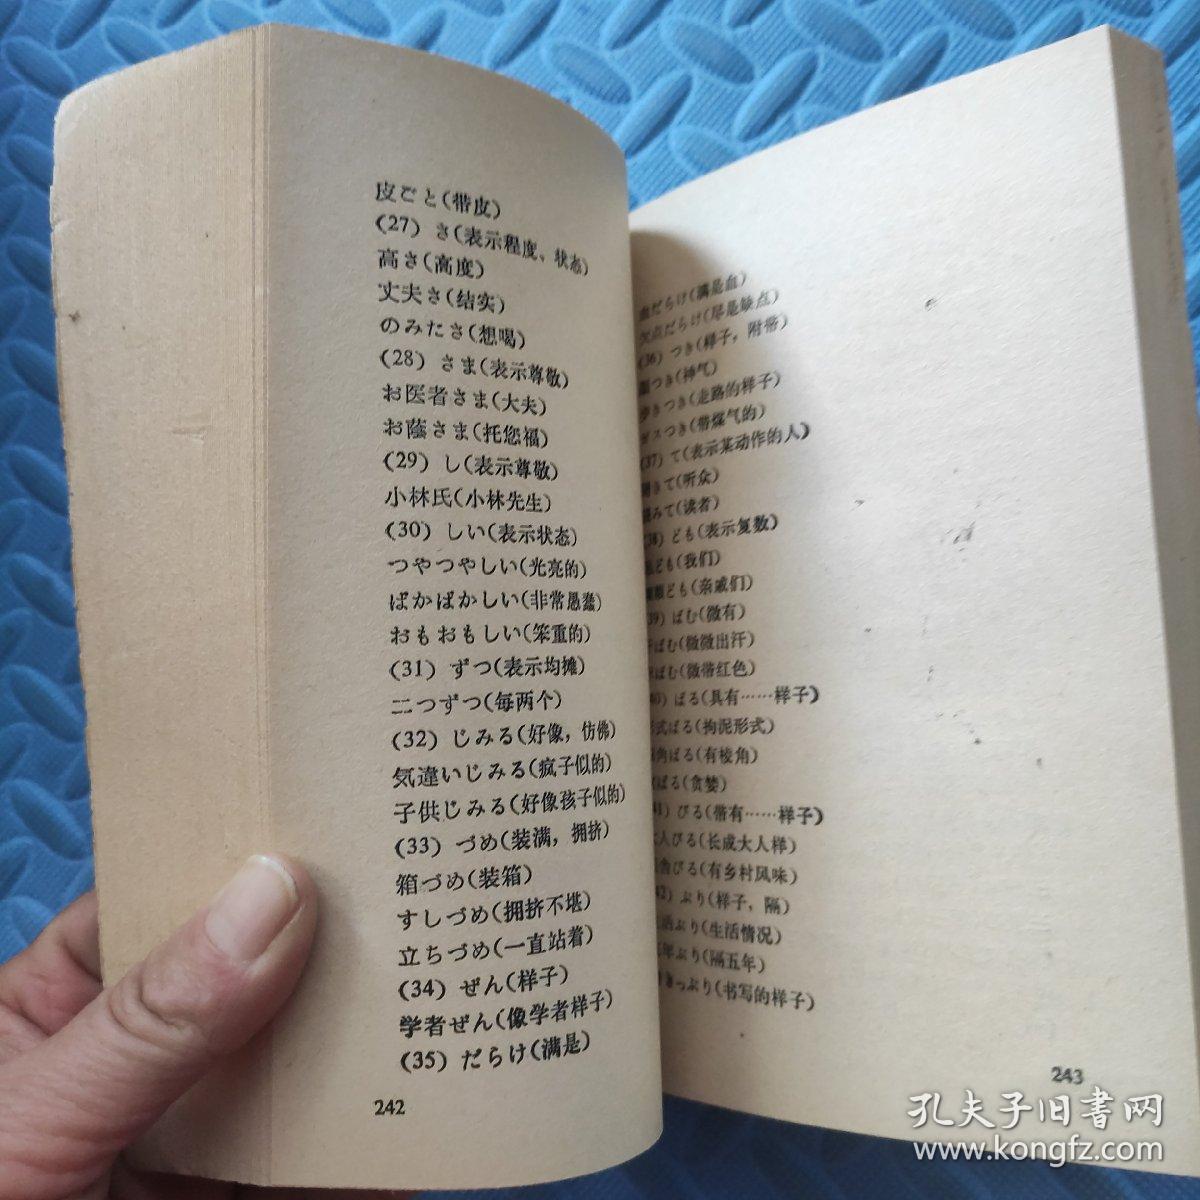 皮ごと(带皮)
(27) さ(表示程度、状态)
高さ(高度)
丈夫さ(结实)
のみたさ(想喝)
(28) さま(表示尊敬)
お医者さま(大夫)
お蔭さま(托您福)
(29) し(表示尊敬)
小林氏(小林先生)
(30) しい(表示状态)
つやつやしい(光亮的)
ばかばかしい(非常愚蠢)
おもおもしい(笨重的)
(31) ずつ(表示均摊)
二つずつ(每两个)
(32) じみる(好像，仿佛)
気違いじみる(疯子似的)
子供じみる(好像孩子似的)
(33) づめ(装满，拥挤)
箱づめ(装箱)
すしづめ(拥挤不堪)
立ちづめ(一直站着)
(34) ぜん(样子)
学者ぜん(像学者样子)
(35) だらけ(满是)
242
血だらけ(满是血)
欠点だらけ(尽是缺点)
(36) つき(样子，附带)
つき(神气)
きつき(走路的样子)
スつき(带煤气的)
(37) て(表示某动作的人)
きて(听众)
みて(读者)
(38) ども(表示复数)
ども(我们)
ども(亲戚们)
39) ばむ(微有)
ばむ(微微出汗)
ばむ(微带红色)
40) ばる(具有……样子)
形式ばる(拘泥形式)
角ばる(有棱角)
ばる(贪婪)
41) びる(带有……样子)
大人びる(长成大人样)
舎びる(有乡村风味)
42) ぶり(样子，隔)
活ぶり(生活情况)
年ぶり(隔五年)
きっぷり(书写的样子)
243
孔夫子旧書网
www.kongfz.com